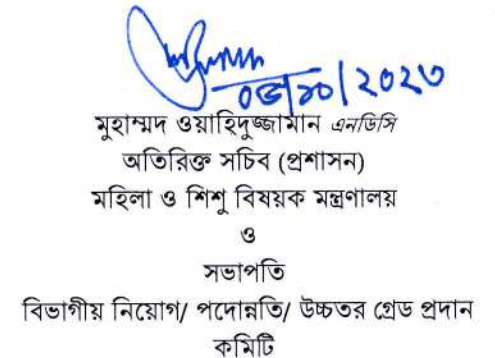 ০৩/১০/২০২৩
মুহাম্মদ ওয়াহিদুজ্জামান এনডিসি
অতিরিক্ত সচিব (প্রশাসন)
মহিলা ও শিশু বিষয়ক মন্ত্রণালয়
ও
সভাপতি
বিভাগীয় নিয়োগ/ পদোন্নতি/ উচ্চতর গ্রেড প্রদান
কমিটি